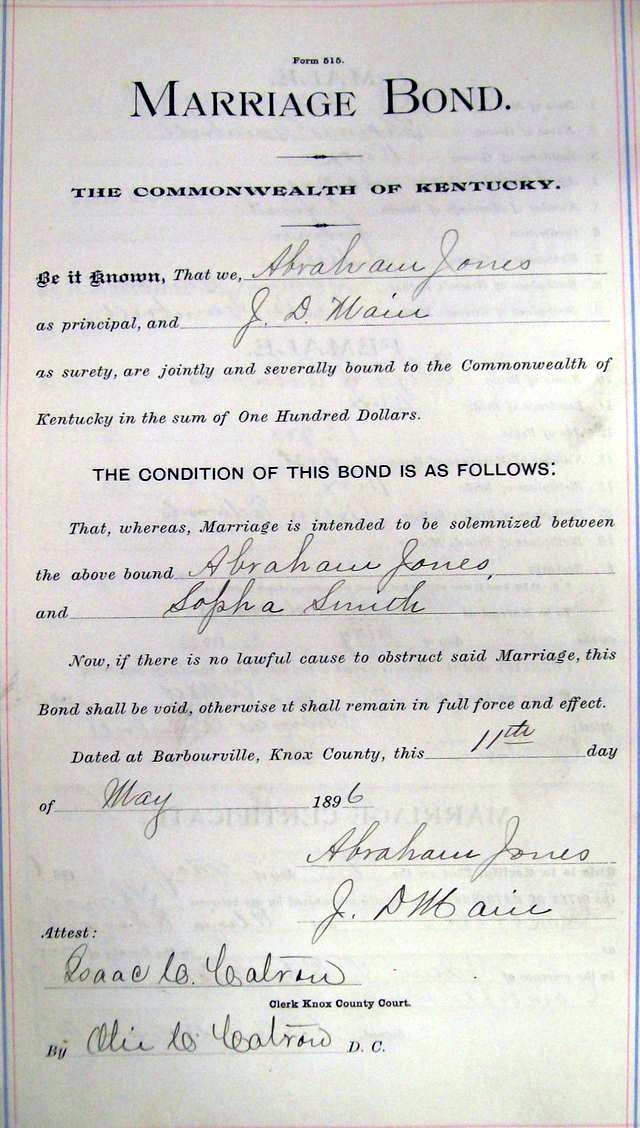 Form 515.
MARRIAGE BOND.
THE COMMONWEALTH OF KENTUCKY.
Be it Known, That we, Abraham Jones
as principal, and J. D. Main
as surety, are jointly and severally bound to the Commonwealth of
Kentucky in the sum of One Hundred Dollars.
THE CONDITION OF THIS BOND IS AS FOLLOWS:
That, whereas, Marriage is intended to be solemnized between
the above bound Abraham Jones,
and Sopha Smith
Now, if there is no lawful cause to obstruct said Marriage, this
Bond shall be void, otherwise it shall remain in full force and effect.
Dated at Barbourville, Knox County, this 11th day
of May 1896
Abraham Jones
J. D Main
Attest:
Isaac C. Catron
Clerk Knox County Court.
By Olie C Catron D. C.